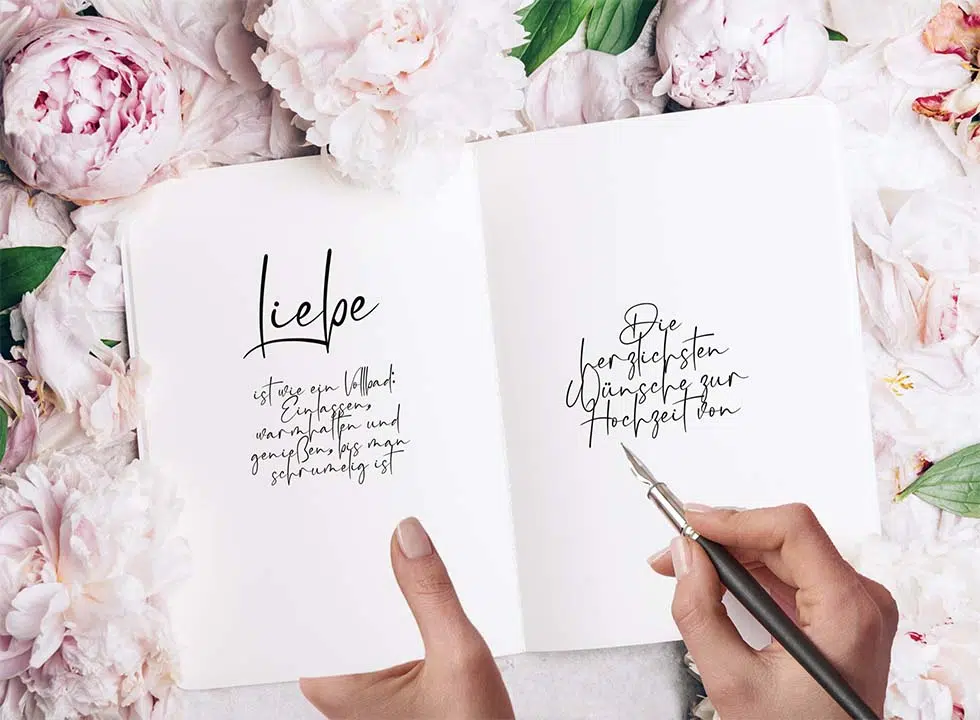 Liebe
ist wie ein Vollbad:
Einlassen,
warmhalten und
genießen, bis man
schrumelig ist
Die
herzlichsten
Wünsche zur
Hochzeit von